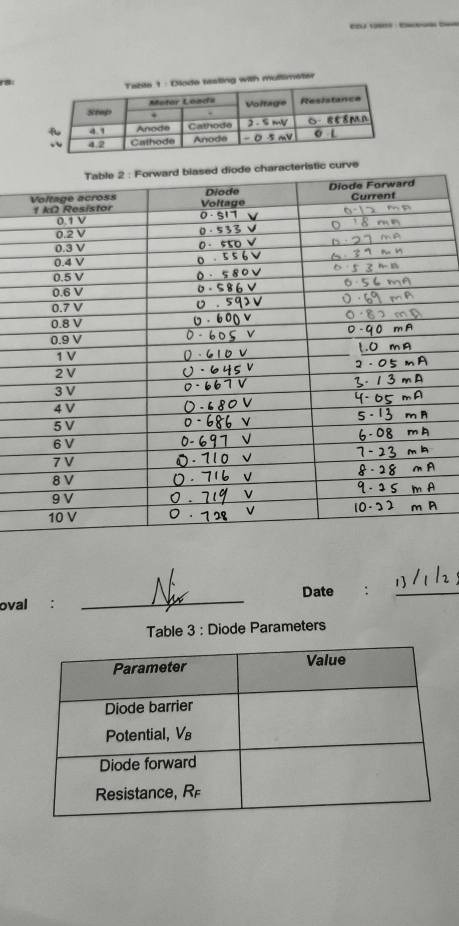 Table 1 : Diode testing with multimeter
Step Meter Leads Voltage Resistance
+ -
4.1 Anode Cathode 2.5 mV 0.888MΩ
4.2 Cathode Anode -0.5 mV O.L
Table 2 : Forward biased diode characteristic curve
Voltage across 1 kΩ Resistor Diode Voltage Diode Forward Current
0.1 V 0.517 V 0.12 mA
0.2 V 0.533 V 0.18 mA
0.3 V 0.550 V 0.27 mA
0.4 V 0.556V 0.39 mA
0.5 V 0.580V 0.53 mA
0.6 V 0.586 V 0.56 mA
0.7 V 0.592V 0.69 mA
0.8 V 0.600V 0.82 mA
0.9 V 0.605 V 0.90 mA
1 V 0.610 V 1.0 mA
2 V 0.645V 2.05 mA
3 V 0.667V 3.13 mA
4 V 0.680 V 4.05 mA
5 V 0.686 V 5.13 mA
6 V 0.697 V 6.08 mA
7 V 0.710 V 7.23 mA
8 V 0.716 V 8.28 mA
9 V 0.719 V 9.25 mA
10 V 0.728 V 10.22 mA
oval : Date : 13/1/2
Table 3 : Diode Parameters
Parameter Value
Diode barrier
Potential, VB
Diode forward
Resistance, RF